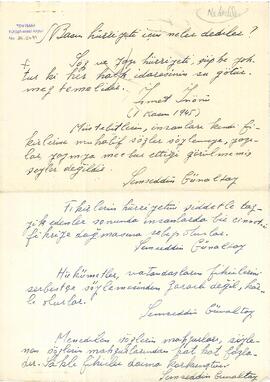 Ne dediler
Basın hürriyeti için neler dediler?
Söz ve yazı hürriyeti, şüphe yok
tur ki her halk idaresinin su götür
mez temelidir.
İsmet İnönü
(1 Kasım 1945)
Müstebitlerin, insanları kendi fi
kirlerine muhalif sözler söylemeye, yazı
lar yazmaya mecbur ettiği görülmemiş
şeyler değildir.
Şemseddin Günaltay
Fikirlerin hürriyetini şiddetle taz
yik edenler sonunda insanlarda bir
fikriye doğmasına sebep olurlar.
Şemseddin Günaltay
Hükümetler, vatandaşların fikirlerini
serbestçe söylemesinden zararlı değil, kâr
lı olurlar.
Şemseddin Günaltay
sözlerin mahzurları, söyle
nen sözlerin mahzurlarından kat kat fazla
dır. Saklı fikirler daima korkunçtur.
Şemseddin Günaltay